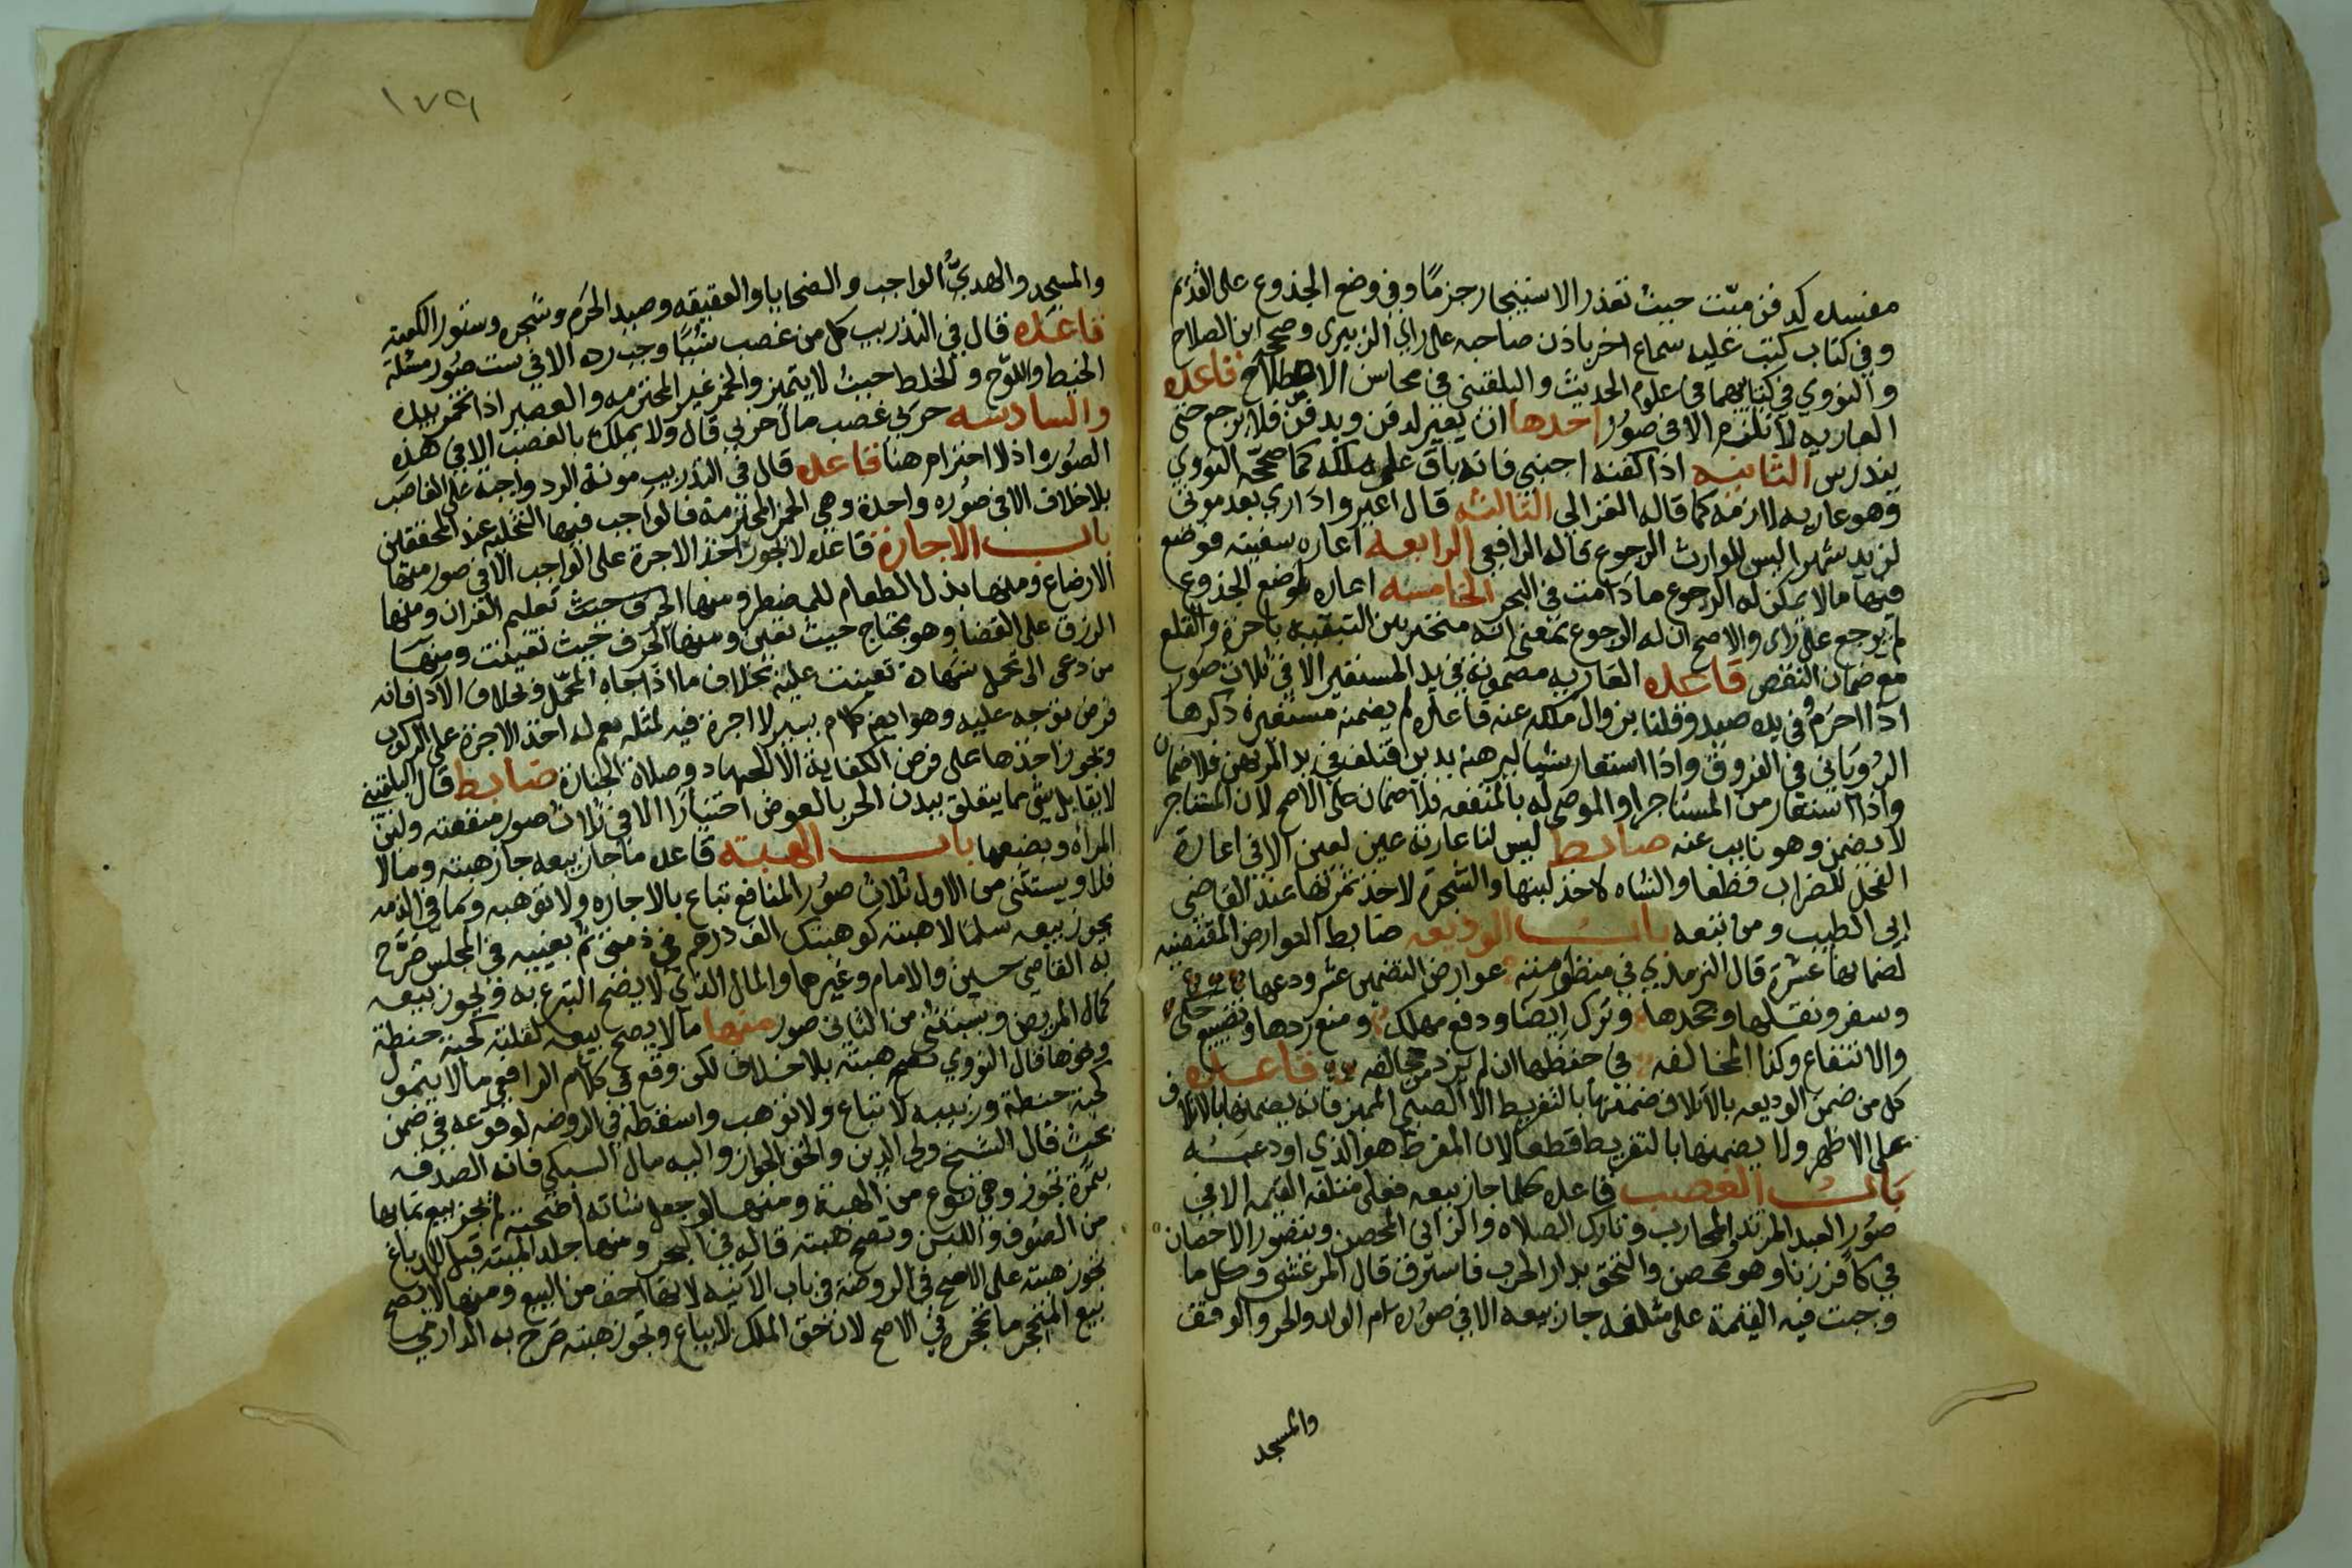 مفسده كدفن ميت حيث تعذر الاستيجار جزما وفي وضع الجذوع على القديم
وفي كتاب كتب عليه سماع اخر باذن صاحبه على راي الزبيري وصححه ابن الصلاح
والنووي في كتابيهما في علوم الحديث والبلقيني في محاسن الاصطلاح قاعده
العاريه لا تلزم الا في صور احدها ان يعير لدفن ويدفن فلا يرجع حتى
يندرس الثانيه اذا كفنه اجنبي فانه باق على ملكه كما صححه النووي
وهو عاريه لازمه كما قاله الغزالي الثالثه قال اعيروا داري بعد موتي
لزيد شهرا ليس للوارث الرجوع قاله الرافعي الرابعه اعاره سفينه فوضع
فيها ما لا يمكن له الرجوع ما دامت في البحر الخامسه اعاره لوضع الجذوع
لم يرجع على راي والاصح ان له الرجوع بمعنى انه متخير بين التبقيه باجرة والقلع
مع ضمان النقص قاعده العاريه مضمونة في يد المستعير الا في ثلاث صور
اذا احرم وفي يده صيد وقلنا بزوال ملكه عنه فاعاره لم يضمنه مستعيره ذكرها
الروياني في الفروق واذا استعار شيا ليرهنه بدين فتلف في يد المرتهن فلا ضمان
واذا استعار من المستاجر او الموصى له بالمنفعه فلا ضمان على الاصح لان المستاجر
لا يضمن وهو نايب عنه ضابط ليس لنا عارية عين لعين الا في اعارة
الفحل للضراب قطعا والشاه لاخذ لبنها والشجرة لاخذ ثمرتها عند القاضي
ابي الطيب ومن تبعه باب الوديعه ضابط العوارض المقتضيه
لضمانها عشرة قال الترمذي في منظومته عوارض التضمين عشر ودعها
وسفر ونقلها وجحدها وترك ايصا ودفع مهلك ومنع ردها وتضييع حكي
والانتفاع وكذا المخالفه في حفظها ان لم يزد من خالفه قاعده
كل من ضمن الوديعه بالاتلاف ضمنها بالتفريط الا الصبي المميز فانه يضمنها بالاتلاف
على الاظهر ولا يضمنها بالتفريط قطعا لان المفرط هو الذي اودعه
باب الغصب قاعده كلما جاز بيعه فعلى متلفه القيمه الا في
صور العبد المرتد والمحارب وتارك الصلاه والزاني المحصن ويتصور الاحصان
في كافر زنا وهو محصن والتحق بدار الحرب فاسترق قال المرعشي وكل ما
وجبت فيه القيمة على متلفه جاز بيعه الا في صوره ام الولد والحر والوقف
والمسجد
١٧٩
والمسجد والهدي الواجب والضحايا والعقيقه وصيد الحرم وشجره وستور الكعبه
قاعده قال في التدريب كل من غصب شيا وجب رده الا في ست صور مسئلة
الخيط واللوح والخلط حيث لا يتميز والخمر غير المحترمه والعصير اذا تخمر بيده
والسادسه حربي غصب مال حربي قال ولا يملك بالغصب الا في هذه
الصوره اذ لا احترام هنا قاعده قال في التدريب مونة الرد واجبة على الغاصب
بلا خلاف الا في صوره واحدة وهي الخمر المحترمة فالواجب فيها التخليه عند المحققين
باب الاجارة قاعده لا يجوز اخذ الاجرة على الواجب الا في صور منها
الارضاع ومنها بذل الطعام للمضطر ومنها الحرف حيث تعليم القران ومنها
الرزق على القضا وهو محتاج حيث تعين ومنها الحرف حيث تعينت ومنها
من دعي الى تحمل شهادة تعينت عليه بخلاف ما اذا جاه المحمل وبخلاف الادا فانه
فرض توجه عليه وهو ايضا كلام يسير لا اجرة فيه لمثله نعم له اخذ الاجرة على الركوب
ويجوز اخذها على فرض الكفاية الا الجهاد وصلاة الجنازة ضابط قال البلقيني
لا يقابل شي مما يتعلق ببدن الحر بالعوض اختيارا الا في ثلاث صور منفعته ولبن
المراه وبضعها باب الهبة قاعده ما جاز بيعه جاز هبته وما لا
فلا ويستثنى من الاول ثلاث صور المنافع تباع بالاجاره ولا توهب وما في الذمه
يجوز بيعه سلما لا هبته كوهبتك الف درهم في ذمتي ثم يعينه في المجلس صرح
به القاضي حسين والامام وغيرهما والمال الذي لا يصح التبرع به ويجوز بيعه
كمال المريض ويستثنى من الثاني صور منها ما لا يصح بيعه لقلته كحبة حنطة
ونحوها قال النووي تصح هبته بلا خلاف لكن وقع في كلام الرافعي ما لا يتمول
كحبة حنطة وزبيبه لا تباع ولا توهب واسقطه في الروضه لوقوعه في ضمن
بحث قال الشيخ ولي الدين والحق الجواز واليه مال السبكي فانه الصدقه
بتمرة تجوز وهي نوع من الهبة ومنها لو جعل شاته اضحية لم يجز بيع نمايها
من الصوف واللبن وتصح هبته قاله في البحر ومنها جلد الميته قبل الدباغ
تجوز هبته على الاصح في الروضة في باب الانيه لانها اخف من البيع ومنها لا يصح
بيع المتحجر ما تحجره في الاصح لان حق الملك لا يباع وتجوز هبته صرح به الدارمي